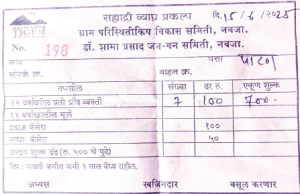 सह्याद्री व्याघ्र प्रकल्प
दि. 15/6/2025
ग्राम परिस्थितीकिय विकास समिती, नवजा.
No. 198
डॉ. शामा प्रसाद जन-वन समिती, नवजा.
नाव
पत्ता
संपर्क क्र.
वाहन क्र.
तपशील संख्या दर रु. एकूण शुल्क
१२ वर्षावरील प्रती प्रौढ व्यक्ती 7 100 700
१२ वर्षाखालील मुले
DSLR कॅमेरा १००
साधा कॅमेरा ५०
उपद्रव शुल्क दंड (रु. ५०० चे पुढे)
टिप : पावती फक्त २ तास वैध राहील.
अध्यक्ष खजिनदार वसूल करणार